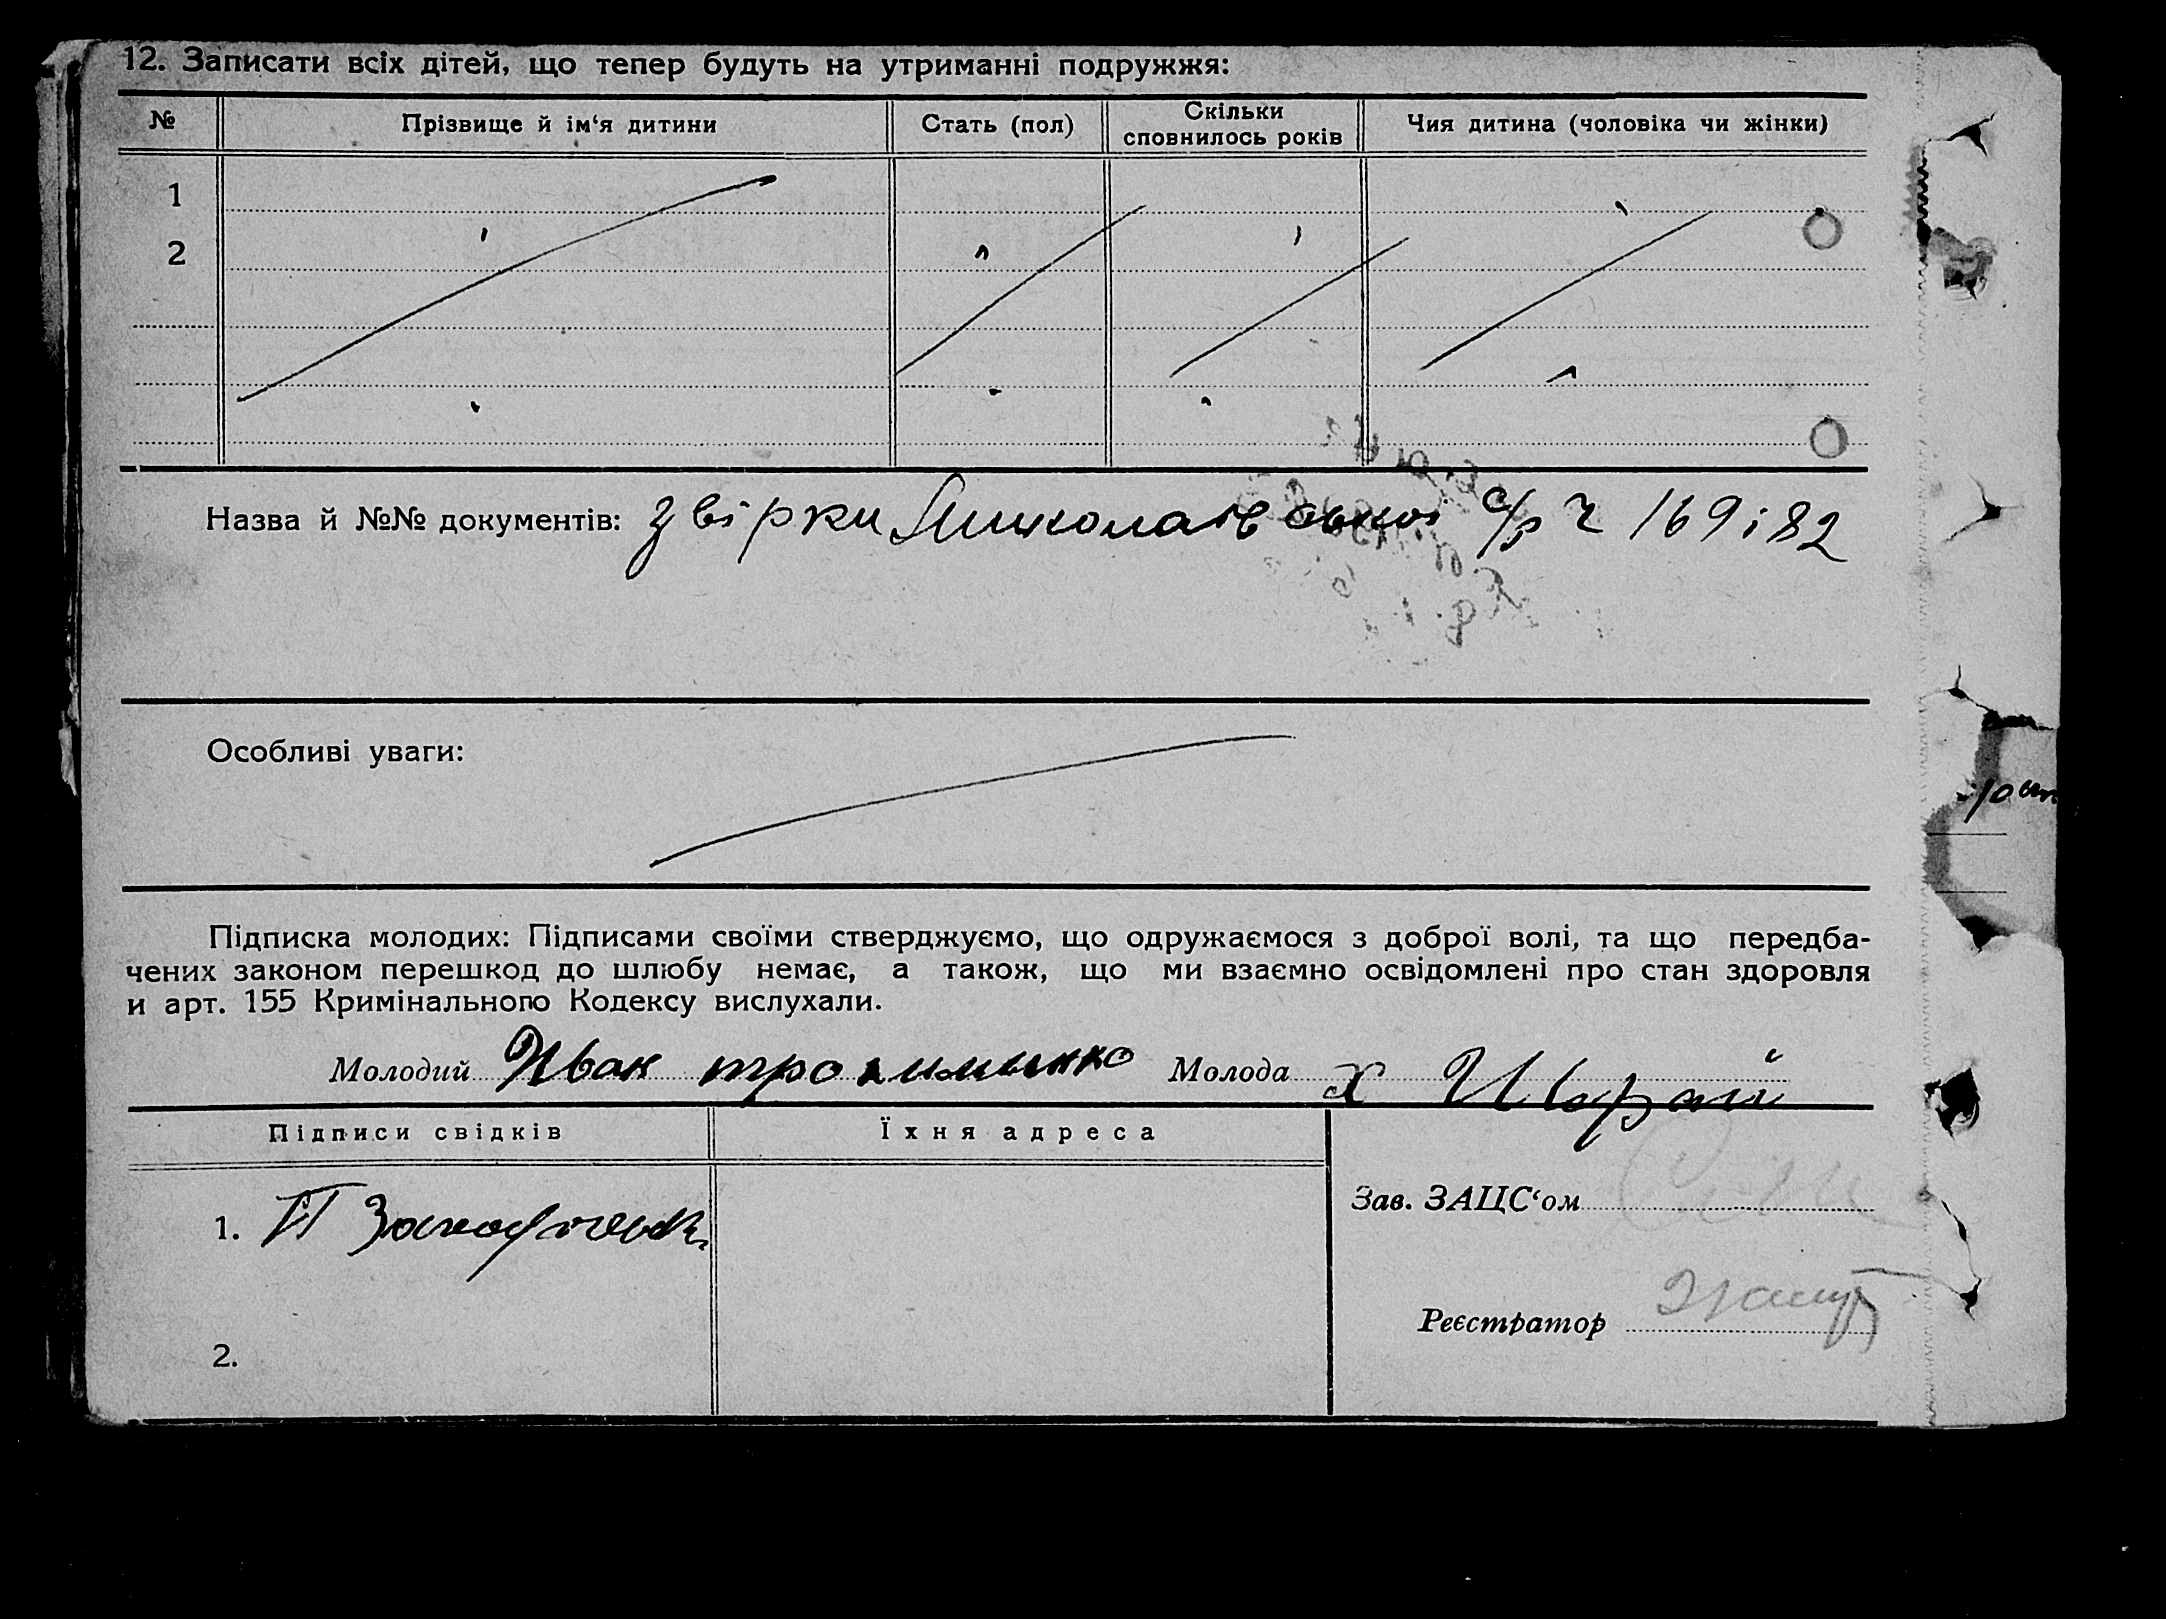 12. Записати всіх дітей, що тепер будуть на утриманні подружжя:
№ Прізвище й ім‘я дитини Стать (пол) Скільки сповнилось років Чия дитина (чоловіка чи жінки)
1
2
Назва й №№ документів: звірки Миколаївської с/р ч 169 і 82
Особливі уваги:
Підписка молодих: Підписами своїми стверджуємо, що одружаємося з доброї волі, та що передба-
чених законом перешкод до шлюбу немає, а також, що ми взаємно освідомлені про стан здоровля
и арт. 155 Кримінального Кодексу вислухали.
Молодий Иван трохименко Молода х
Підписи свідків Їхня адреса
Зав. ЗАЦС‘ом
1. П
Реєстратор
2.